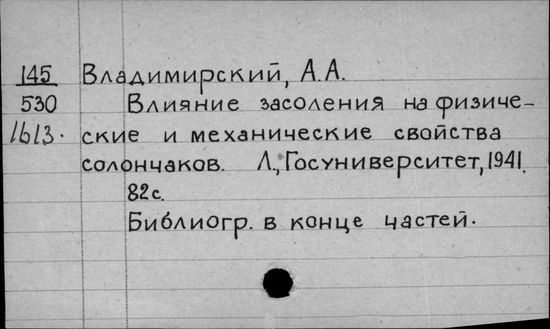 145 Владимирский, А.А.
530 Влияние засоления на физиче-
1613. ские и механические свойства
солончаков. Л., Госуниверситет, 1941.
82с.
Библиогр. в конце частей.